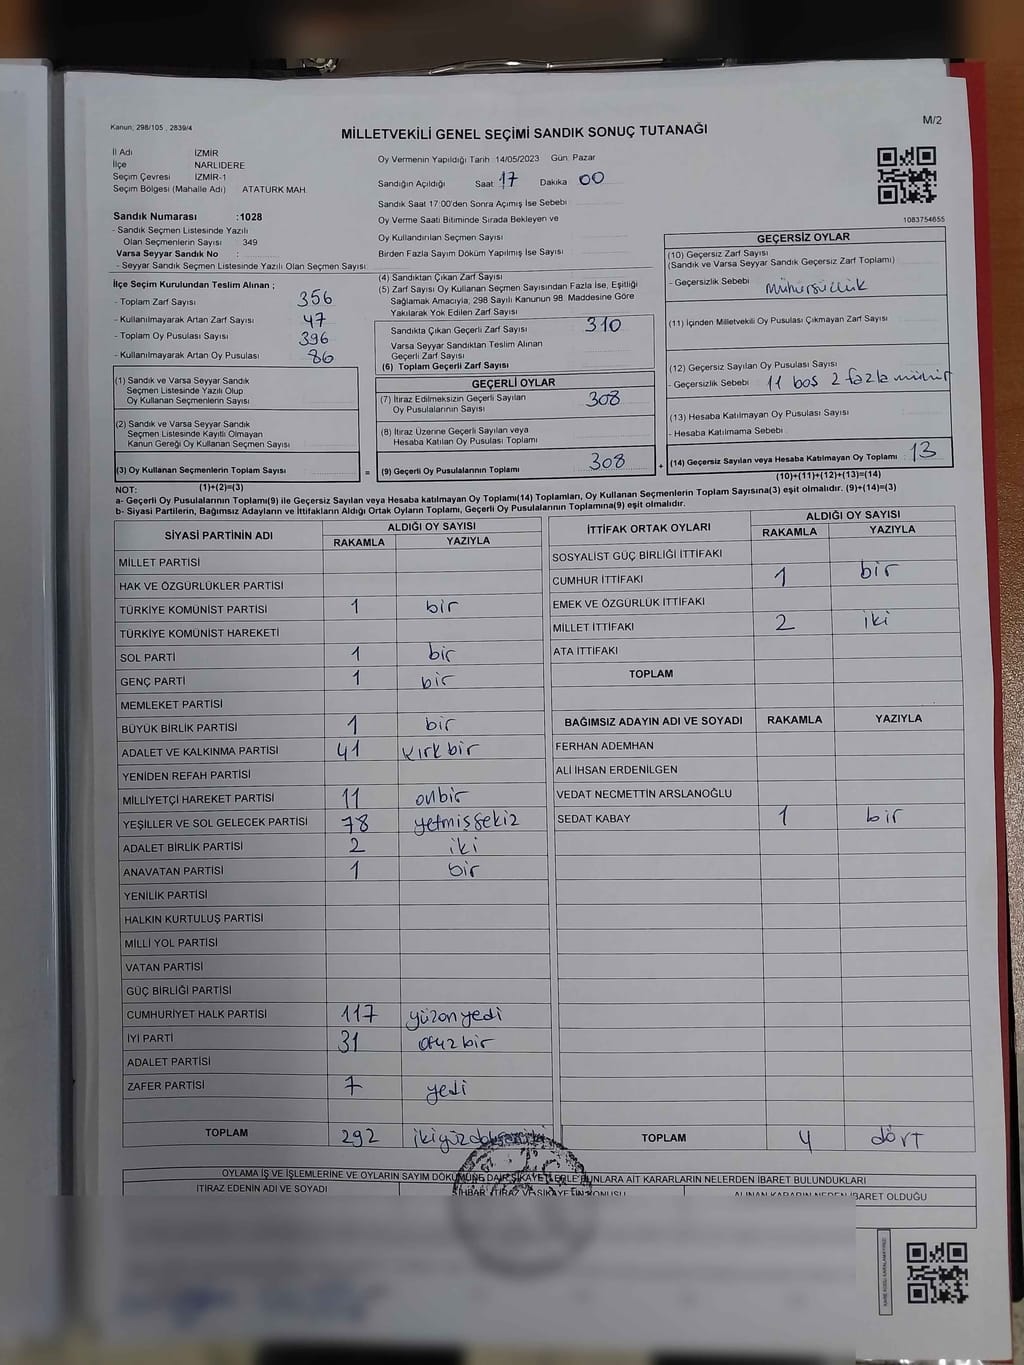 Kanun; 298/105 , 2839/4
M/2
MİLLETVEKİLİ GENEL SEÇİMİ SANDIK SONUÇ TUTANAĞI
İl Adı İZMİR
İlçe NARLIDERE
Seçim Çevresi İZMİR-1
Seçim Bölgesi (Mahalle Adı) ATATÜRK MAH.
Sandık Numarası :1028
- Sandık Seçmen Listesinde Yazılı
Olan Seçmenlerin Sayısı 349
Varsa Seyyar Sandık No :
- Seyyar Sandık Seçmen Listesinde Yazılı Olan Seçmen Sayısı
İlçe Seçim Kurulundan Teslim Alınan ;
- Toplam Zarf Sayısı 356
- Kullanılmayarak Artan Zarf Sayısı 47
- Toplam Oy Pusulası Sayısı 396
- Kullanılmayarak Artan Oy Pusulası 86
(1) Sandık ve Varsa Seyyar Sandık
Seçmen Listesinde Yazılı Olup
Oy Kullanan Seçmenlerin Sayısı
(2) Sandık ve Varsa Seyyar Sandık
Seçmen Listesinde Kayıtlı Olmayan
Kanun Gereği Oy Kullanan Seçmen Sayısı
(3) Oy Kullanan Seçmenlerin Toplam Sayısı
(1)+(2)=(3)
Oy Vermenin Yapıldığı Tarih 14/05/2023 Gün: Pazar
Sandığın Açıldığı Saat 17 Dakika 00
Sandık Saat 17:00'den Sonra Açımış İse Sebebi
Oy Verme Saati Bitiminde Sırada Bekleyen ve
Oy Kullandırılan Seçmen Sayısı
Birden Fazla Sayım Döküm Yapılmış İse Sayısı
(4) Sandıktan Çıkan Zarf Sayısı
(5) Zarf Sayısı Oy Kullanan Seçmen Sayısından Fazla İse, Eşitliği
Sağlamak Amacıyla, 298 Sayılı Kanunun 98. Maddesine Göre
Yakılarak Yok Edilen Zarf Sayısı
Sandıkta Çıkan Geçerli Zarf Sayısı 310
Varsa Seyyar Sandıktan Teslim Alınan
Geçerli Zarf Sayısı
(6) Toplam Geçerli Zarf Sayısı
GEÇERLİ OYLAR
(7) İtiraz Edilmeksizin Geçerli Sayılan
Oy Pusulalarının Sayısı 308
(8) İtiraz Üzerine Geçerli Sayılan veya
Hesaba Katılan Oy Pusulası Toplamı
= (9) Geçerli Oy Pusulalarının Toplamı 308 +
1083754655
GEÇERSİZ OYLAR
(10) Geçersiz Zarf Sayısı
(Sandık ve Varsa Seyyar Sandık Geçersiz Zarf Toplamı)
- Geçersizlik Sebebi mühürsüzlük
(11) İçinden Milletvekili Oy Pusulası Çıkmayan Zarf Sayısı
(12) Geçersiz Sayılan Oy Pusulası Sayısı
- Geçersizlik Sebebi 11 boş 2 fazla mühür
(13) Hesaba Katılmayan Oy Pusulası Sayısı
- Hesaba Katılmama Sebebi
(14) Geçersiz Sayılan veya Hesaba Katılmayan Oy Toplamı 13
(10)+(11)+(12)+(13)=(14)
NOT:
a- Geçerli Oy Pusulalarının Toplamı(9) ile Geçersiz Sayılan veya Hesaba katılmayan Oy Toplamı(14) Toplamları, Oy Kullanan Seçmenlerin Toplam Sayısına(3) eşit olmalıdır. (9)+(14)=(3)
b- Siyasi Partilerin, Bağımsız Adayların ve İttifakların Aldığı Ortak Oyların Toplamı, Geçerli Oy Pusulalarının Toplamına(9) eşit olmalıdır.
SİYASİ PARTİNİN ADI ALDIĞI OY SAYISI
RAKAMLA YAZIYLA
MİLLET PARTİSİ
HAK VE ÖZGÜRLÜKLER PARTİSİ
TÜRKİYE KOMÜNİST PARTİSİ 1 bir
TÜRKİYE KOMÜNİST HAREKETİ
SOL PARTİ 1 bir
GENÇ PARTİ 1 bir
MEMLEKET PARTİSİ
BÜYÜK BİRLİK PARTİSİ 1 bir
ADALET VE KALKINMA PARTİSİ 41 kırkbir
YENİDEN REFAH PARTİSİ
MİLLİYETÇİ HAREKET PARTİSİ 11 onbir
YEŞİLLER VE SOL GELECEK PARTİSİ 78 yetmişsekiz
ADALET BİRLİK PARTİSİ 2 iki
ANAVATAN PARTİSİ 1 bir
YENİLİK PARTİSİ
HALKIN KURTULUŞ PARTİSİ
MİLLİ YOL PARTİSİ
VATAN PARTİSİ
GÜÇ BİRLİĞİ PARTİSİ
CUMHURİYET HALK PARTİSİ 117 yüzonyedi
İYİ PARTİ 31 otuzbir
ADALET PARTİSİ
ZAFER PARTİSİ 7 yedi
TOPLAM 292
İTTİFAK ORTAK OYLARI ALDIĞI OY SAYISI
RAKAMLA YAZIYLA
SOSYALİST GÜÇ BİRLİĞİ İTTİFAKI
CUMHUR İTTİFAKI 1 bir
EMEK VE ÖZGÜRLÜK İTTİFAKI
MİLLET İTTİFAKI 2 iki
ATA İTTİFAKI
TOPLAM
BAĞIMSIZ ADAYIN ADI VE SOYADI RAKAMLA YAZIYLA
FERHAN ADEMHAN
ALİ İHSAN ERDENİLGEN
VEDAT NECMETTİN ARSLANOĞLU
SEDAT KABAY 1 bir
TOPLAM 4 dört
OYLAMA İŞ VE İŞLEMLERİNE VE OYLARIN SAYIM DÖKÜMÜNE DAİR ŞİKAYETLERLE BUNLARA AİT KARARLARIN NELERDEN İBARET BULUNDUKLARI
İTİRAZ EDENİN ADI VE SOYADI
İHBAR, İTİRAZ VE ŞİKAYETİN KONUSU
ALINAN KARARIN NEDEN İBARET OLDUĞU